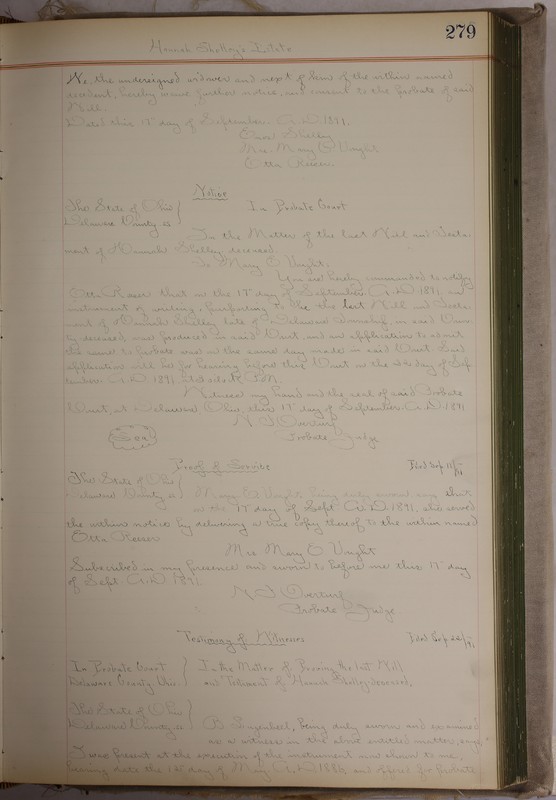 279
Hannah Shelley's Estate
We, the undersigned widower and next of kin of the within named
decedent, hereby waive further notice, and consent to the Probate of said
Will.
Dated this 17" day of September A.D. 1891.
Shelley
Mrs. Mary E Wright
Otta Reeser
Notice
The State of Ohio
Delaware County ss
In Probate Court
In the Matter of the last Will and Testa-
ment of Hannah Shelley deceased.
To Mary E Wright.
You are hereby commanded to notify
Otta Reeser that on the 17" day of September A.D. 1891, an
instrument of writing, purporting to be the last Will and Testa-
ment of Hannah Shelley late of Delaware Township, in said Coun-
ty deceased was produced in said Court, and an application to admit
the same to Probate was on the same day made in said Court. Said
application will be for hearing before this Court on the day of Sep-
tember A.D. 1891 at o'clock M.
Witness my hand and the seal of said Probate
Court, at Delaware Ohio, this 17" day of September A.D. 1891
Seal
Probate Judge
Proof of Service
Filed Sep
The State of Ohio
Delaware County ss
Mary E Wright being duly sworn says that
on the 17" day of Sept A.D. 1891, she served
the within notice by delivering a true copy thereof to the within named
Otta Reeser
Mrs Mary E Wright
Subscribed in my presence and sworn to before me this 17" day
of Sept. A.D. 1891.
Probate Judge
Testimony of Witnesses
Filed Sep
In Probate Court
Delaware County Ohio
In the Matter of Proving the last Will
and Testament of Hannah Shelley deceased.
The State of Ohio
Delaware County ss
being duly sworn and examined
as a witness in the above entitled matter, says
I was present at the execution of the instrument now shown to me,
bearing date the day of May A.D. and offered for Probate